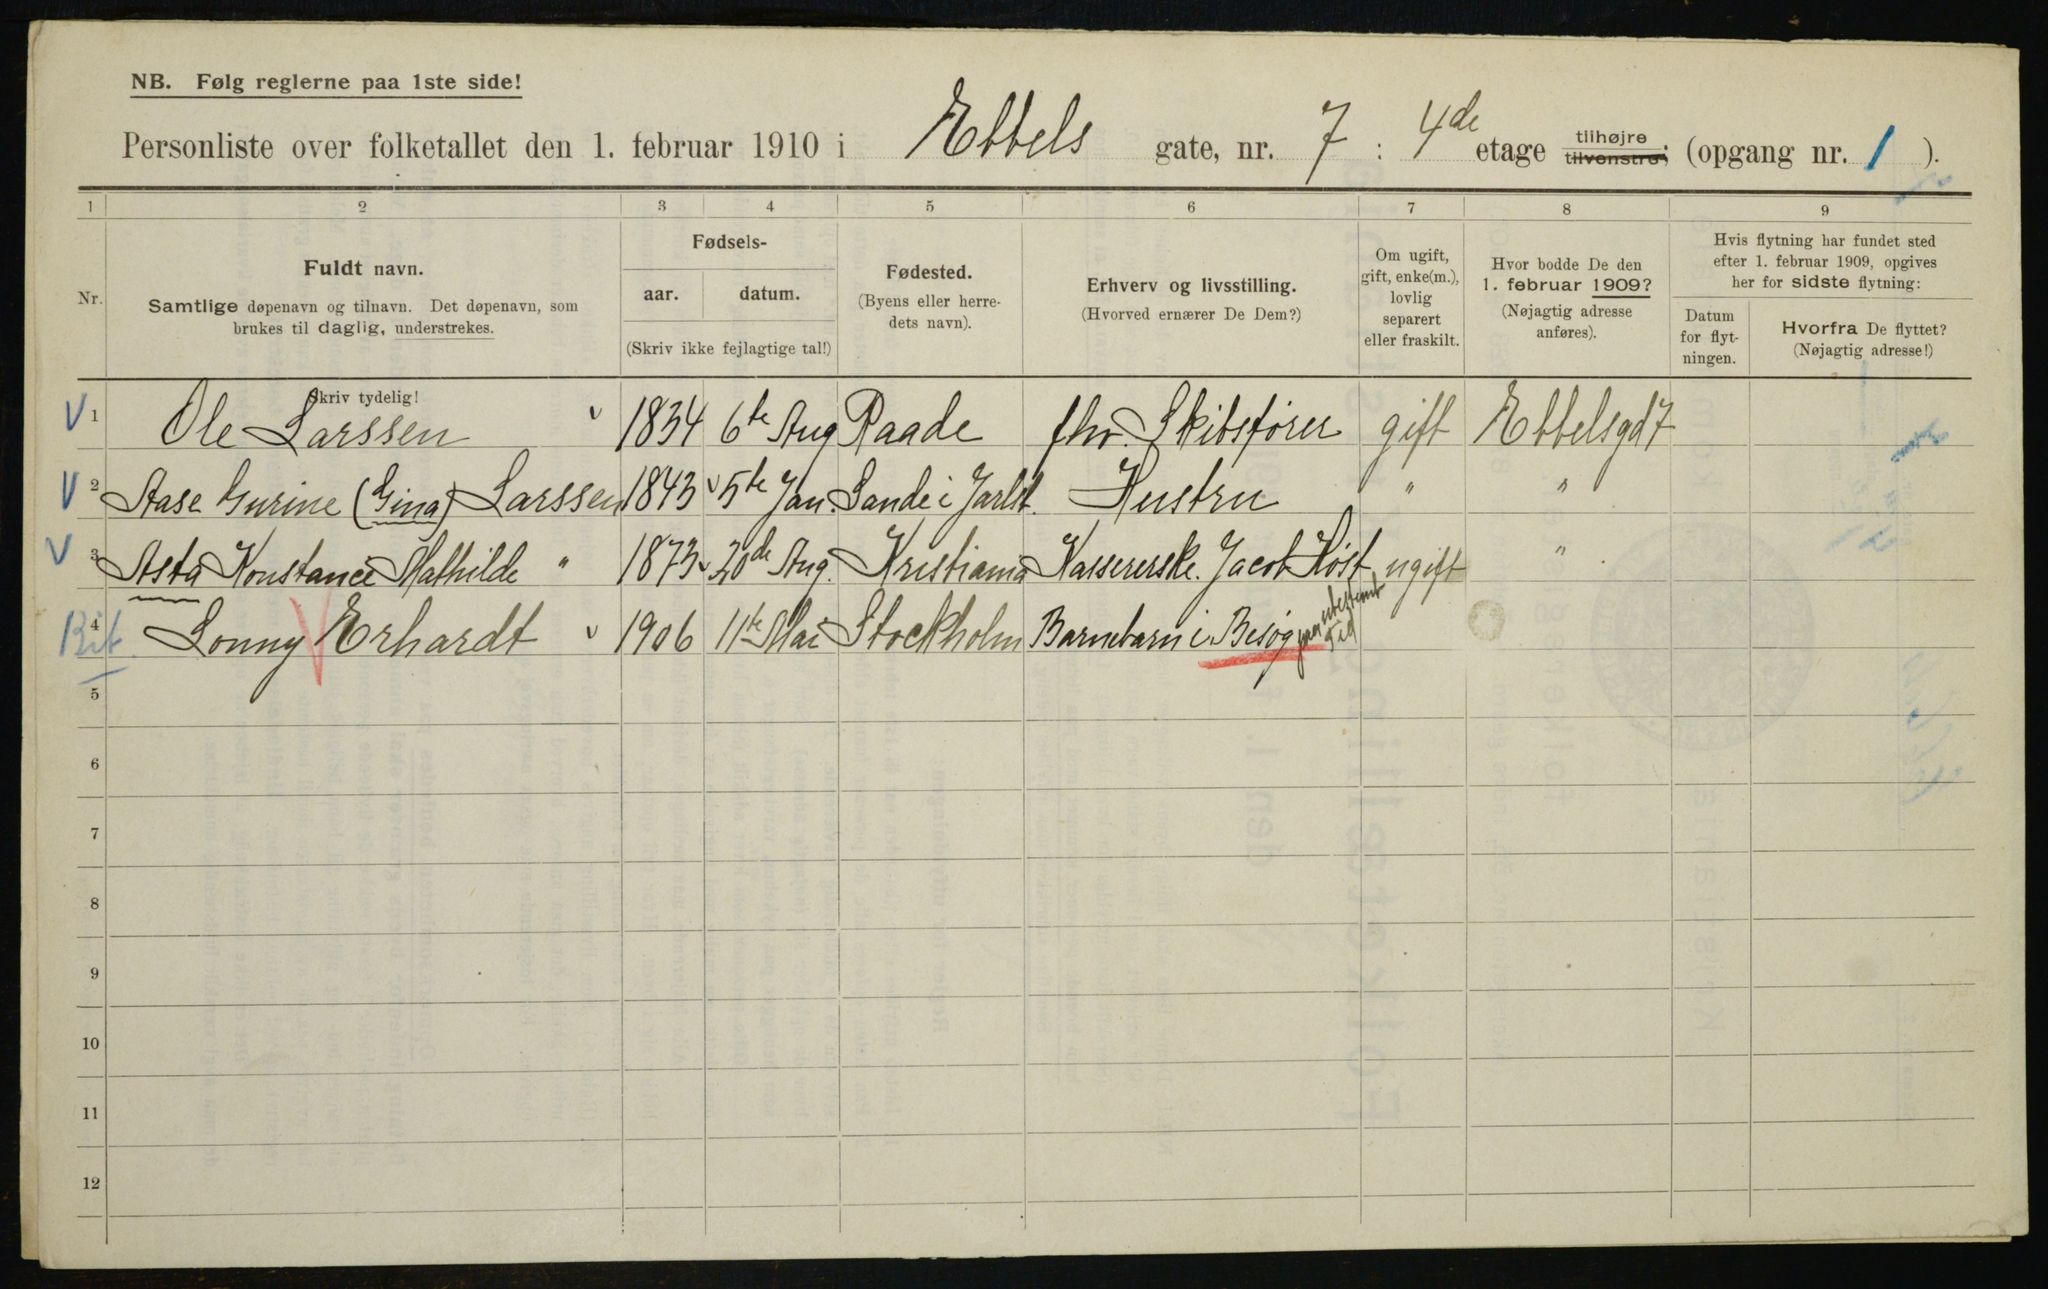 NB. Følg reglerne paa 1ste side!
Personliste over folketallet den 1. februar 1910 i Ebbels gate, nr. 7 : 4de etage tilhøjre tilvenstre; (opgang nr. 1 ).
1 2 3 4 5 6 7 8 9
Nr.
Fuldt navn.
Samtlige døpenavn og tilnavn. Det døpenavn, som
brukes til daglig, understrekes.
Fødsels-
aar. datum.
(Skriv ikke fejlagtige tal!)
Fødested.
(Byens eller herre-
dets navn).
Erhverv og livsstilling.
(Hvorved ernærer De Dem?)
Om ugift,
gift, enke(m.),
lovlig
separert
eller fraskilt.
Hvor bodde De den
1. februar 1909?
(Nøjagtig adresse
anføres).
Hvis flytning har fundet sted
efter 1. februar 1909, opgives
her for sidste flytning:
Datum
for flyt-
ningen.
Hvorfra De flyttet?
(Nøjagtig adresse!)
Skriv tydelig!
V 1 Ole Larssen v 1834 6te Aug Raade fhv. Skibsfører gift Ebbelsgd 7
V 2 Aase Gurine (Gina) Larssen 1843 v 5te Jan. Sande i Jarlsb. Hustru " "
V 3 Asta Konstance Mathilde " 1873 v 20de Aug. Kristiania Kassererske. Jacob Høst ugift "
4 Lonny Erhardt v 1906 11te Mai Stockholm Barnebarn i Besøg paa ubestemt Tid
5
6
7
8
9
10
11
12